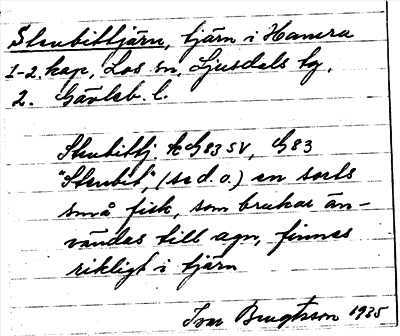 Stenbittjärn, tjärn i Hamra
1-2. kap, Los sn, Ljusdals tg,
2. Gävleb. l.
Stenbittj. AK G83 SV, G83
"Stenbit", (se d. o.) en sorts
små fisk, som brukar än-
vändas till agn, finnes
rikligt i tjärn
Bengtsson 1935